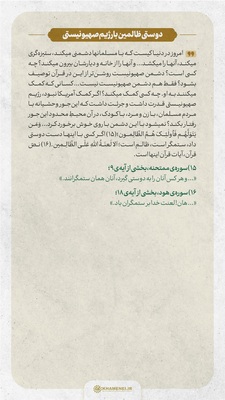 دوستی ظالمین با رژیم صهیونیستی
امروز در دنیا کیست که با مسلمانها دشمنی میکند، ستیزه‌گری
میکند، آنها را میکشد... و آنها را از خانه و دیارشان بیرون میکند؟ چه
کسی است؟ دشمن صهیونیست روشن‌تر از این در قرآن توصیف
بشود؟ فقط هم دشمن صهیونیست نیست... کسانی که کمک
میکنند به او، چه کسی کمک میکند؟ اگر کمک آمریکا نبود، رژیم
صهیونیستی قدرت داشت و جرئت داشت که این جور وحشیانه با
مردم مسلمان، با زن و مرد، با کودک، در آن محیط محدود این جور
رفتار بکند؟ نمیشود با این دشمن با روی خوش برخورد کرد... وَمَن
یَتَوَلَّهُم فَأُولٰئِکَ هُمُ الظّالِمون؛(۱۵) اگر کسی با اینها دست دوستی
داد، ستمگر است، ظالم است؛ اَلا لَعنَةُ اللهِ عَلَی الظّالِمین. (۱۶) نصّ
قرآن، آیات قرآن اینها است.
۱۵) سوره‌ی ممتحنه، بخشی از آیه‌ی ۹؛
«... و هر کس آنان را به دوستی گیرد، آنان همان ستمگرانند...»
۱۶) سوره‌ی هود، بخشی از آیه‌ی ۱۸؛
«... هان! لعنت خدا بر ستمگران باد.»
KHAMENEI.IR